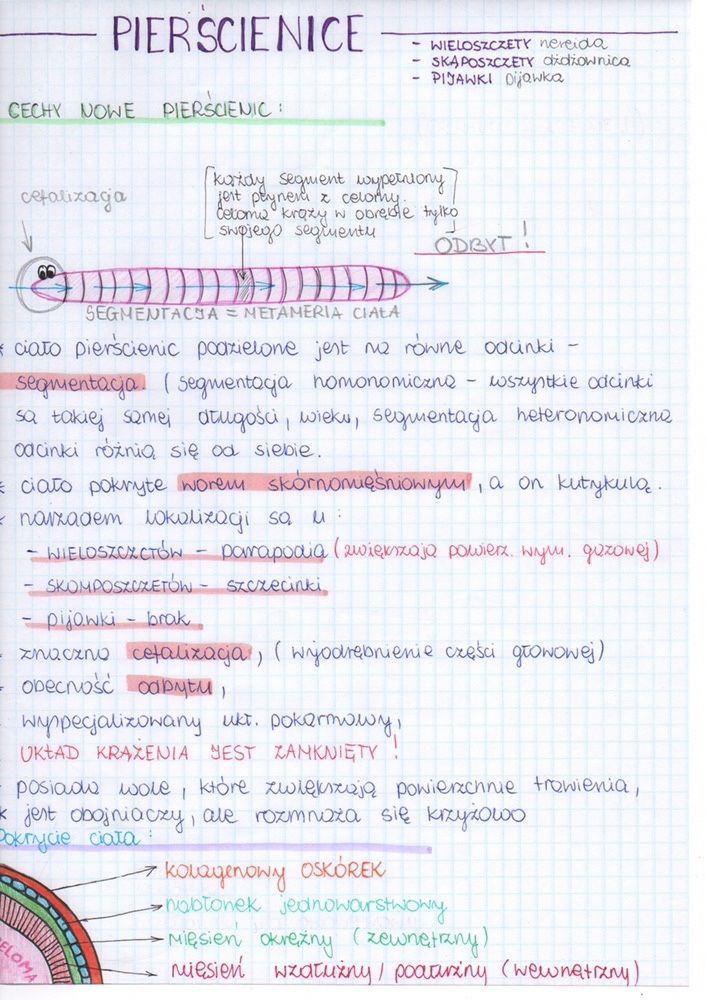 PIERŚCIENICE
- WIELOSZCZETY nereida
- SKĄPOSZCZETY dżdżownica
- PIJAWKI pijawka
CECHY NOWE PIERŚCIENIC:
cefalizacja
każdy segment wypełniony
jest płynem z celomy.
Celoma krąży w obrębie tylko
swojego segmentu
ODBYT!
SEGMENTACJA = METAMERIA CIAŁA
* ciało pierścienic podzielone jest na równe odcinki -
segmentacja (segmentacja homonomiczna - wszystkie odcinki
są takiej samej długości, wieku, segmentacja heteronomiczna
odcinki różnią się od siebie.
* ciało pokryte worem skórnomięśniowym, a on kutykulą.
* narządem lokalizacji są u:
- WIELOSZCZCTÓW - parapodia (zwiększają powierz. wym. gazowej)
- SKOMPOSZCZETÓW - szczecinki
- pijawki - brak
- znaczna cefalizacja, (wyodrębnienie części głowowej)
* obecność odbytu,
wyspecjalizowany ukł. pokarmowy,
UKŁAD KRĄŻENIA JEST ZAMKNIĘTY!
posiada wole, które zwiększają powierzchnie trawienia,
* jest obojniaczy, ale rozmnaża się krzyżowo
Pokrycie ciała:
kolagenowy OSKÓREK
nabłonek jednowarstwowy
mięsień okrężny (zewnętrzny)
mięsień wzdłużny / podłużny (wewnętrzny)
CELOMA